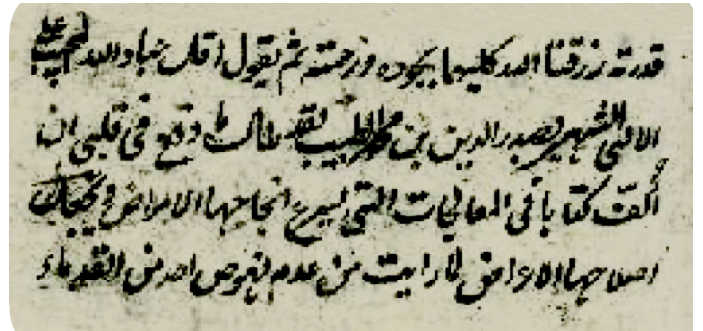 قدرته رزقنا الله كليهما بجوده ورحمته ثم يقول اقل عباد الله
الالهى الشهير بصدر الدين بن محمد الطبيب وقع فى قلبى ان
اؤلف كتابا فى المعالجات التى يسرع انجاحها الامراض
اصلاحها الاعراض لما رايت من عدم تعرض احد من القدماء